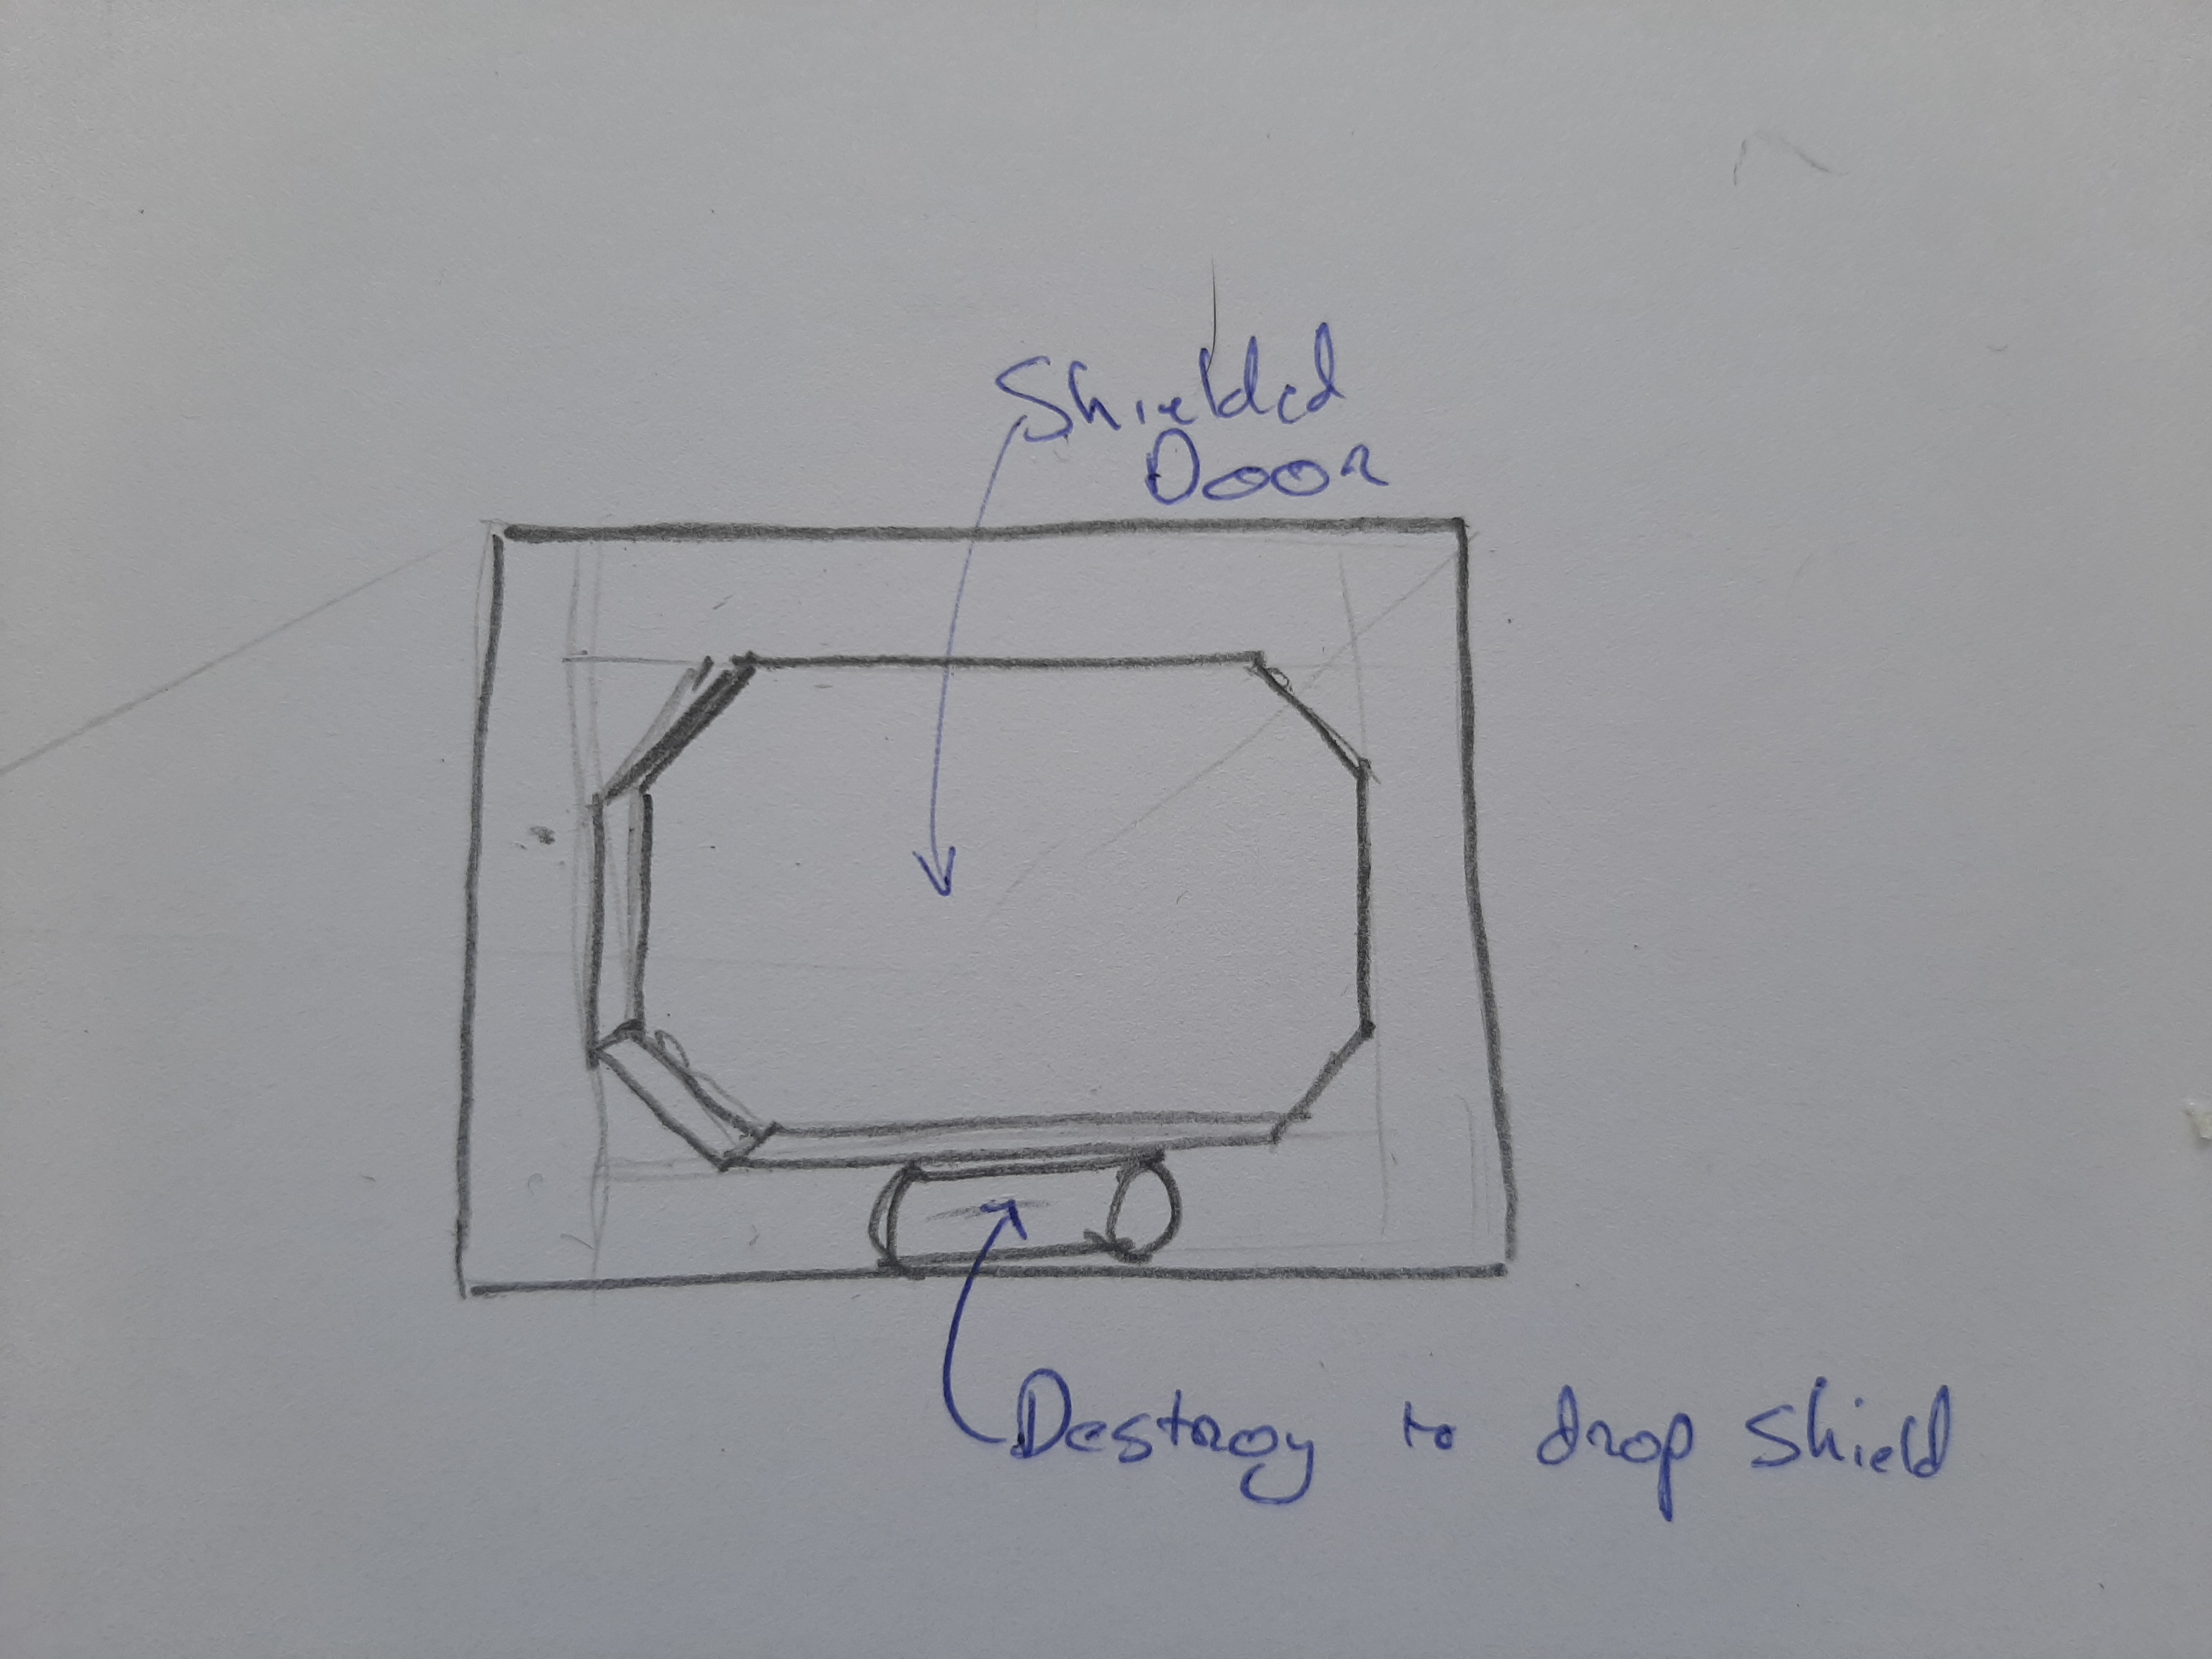 Shielded
Door
Destroy to drop shield